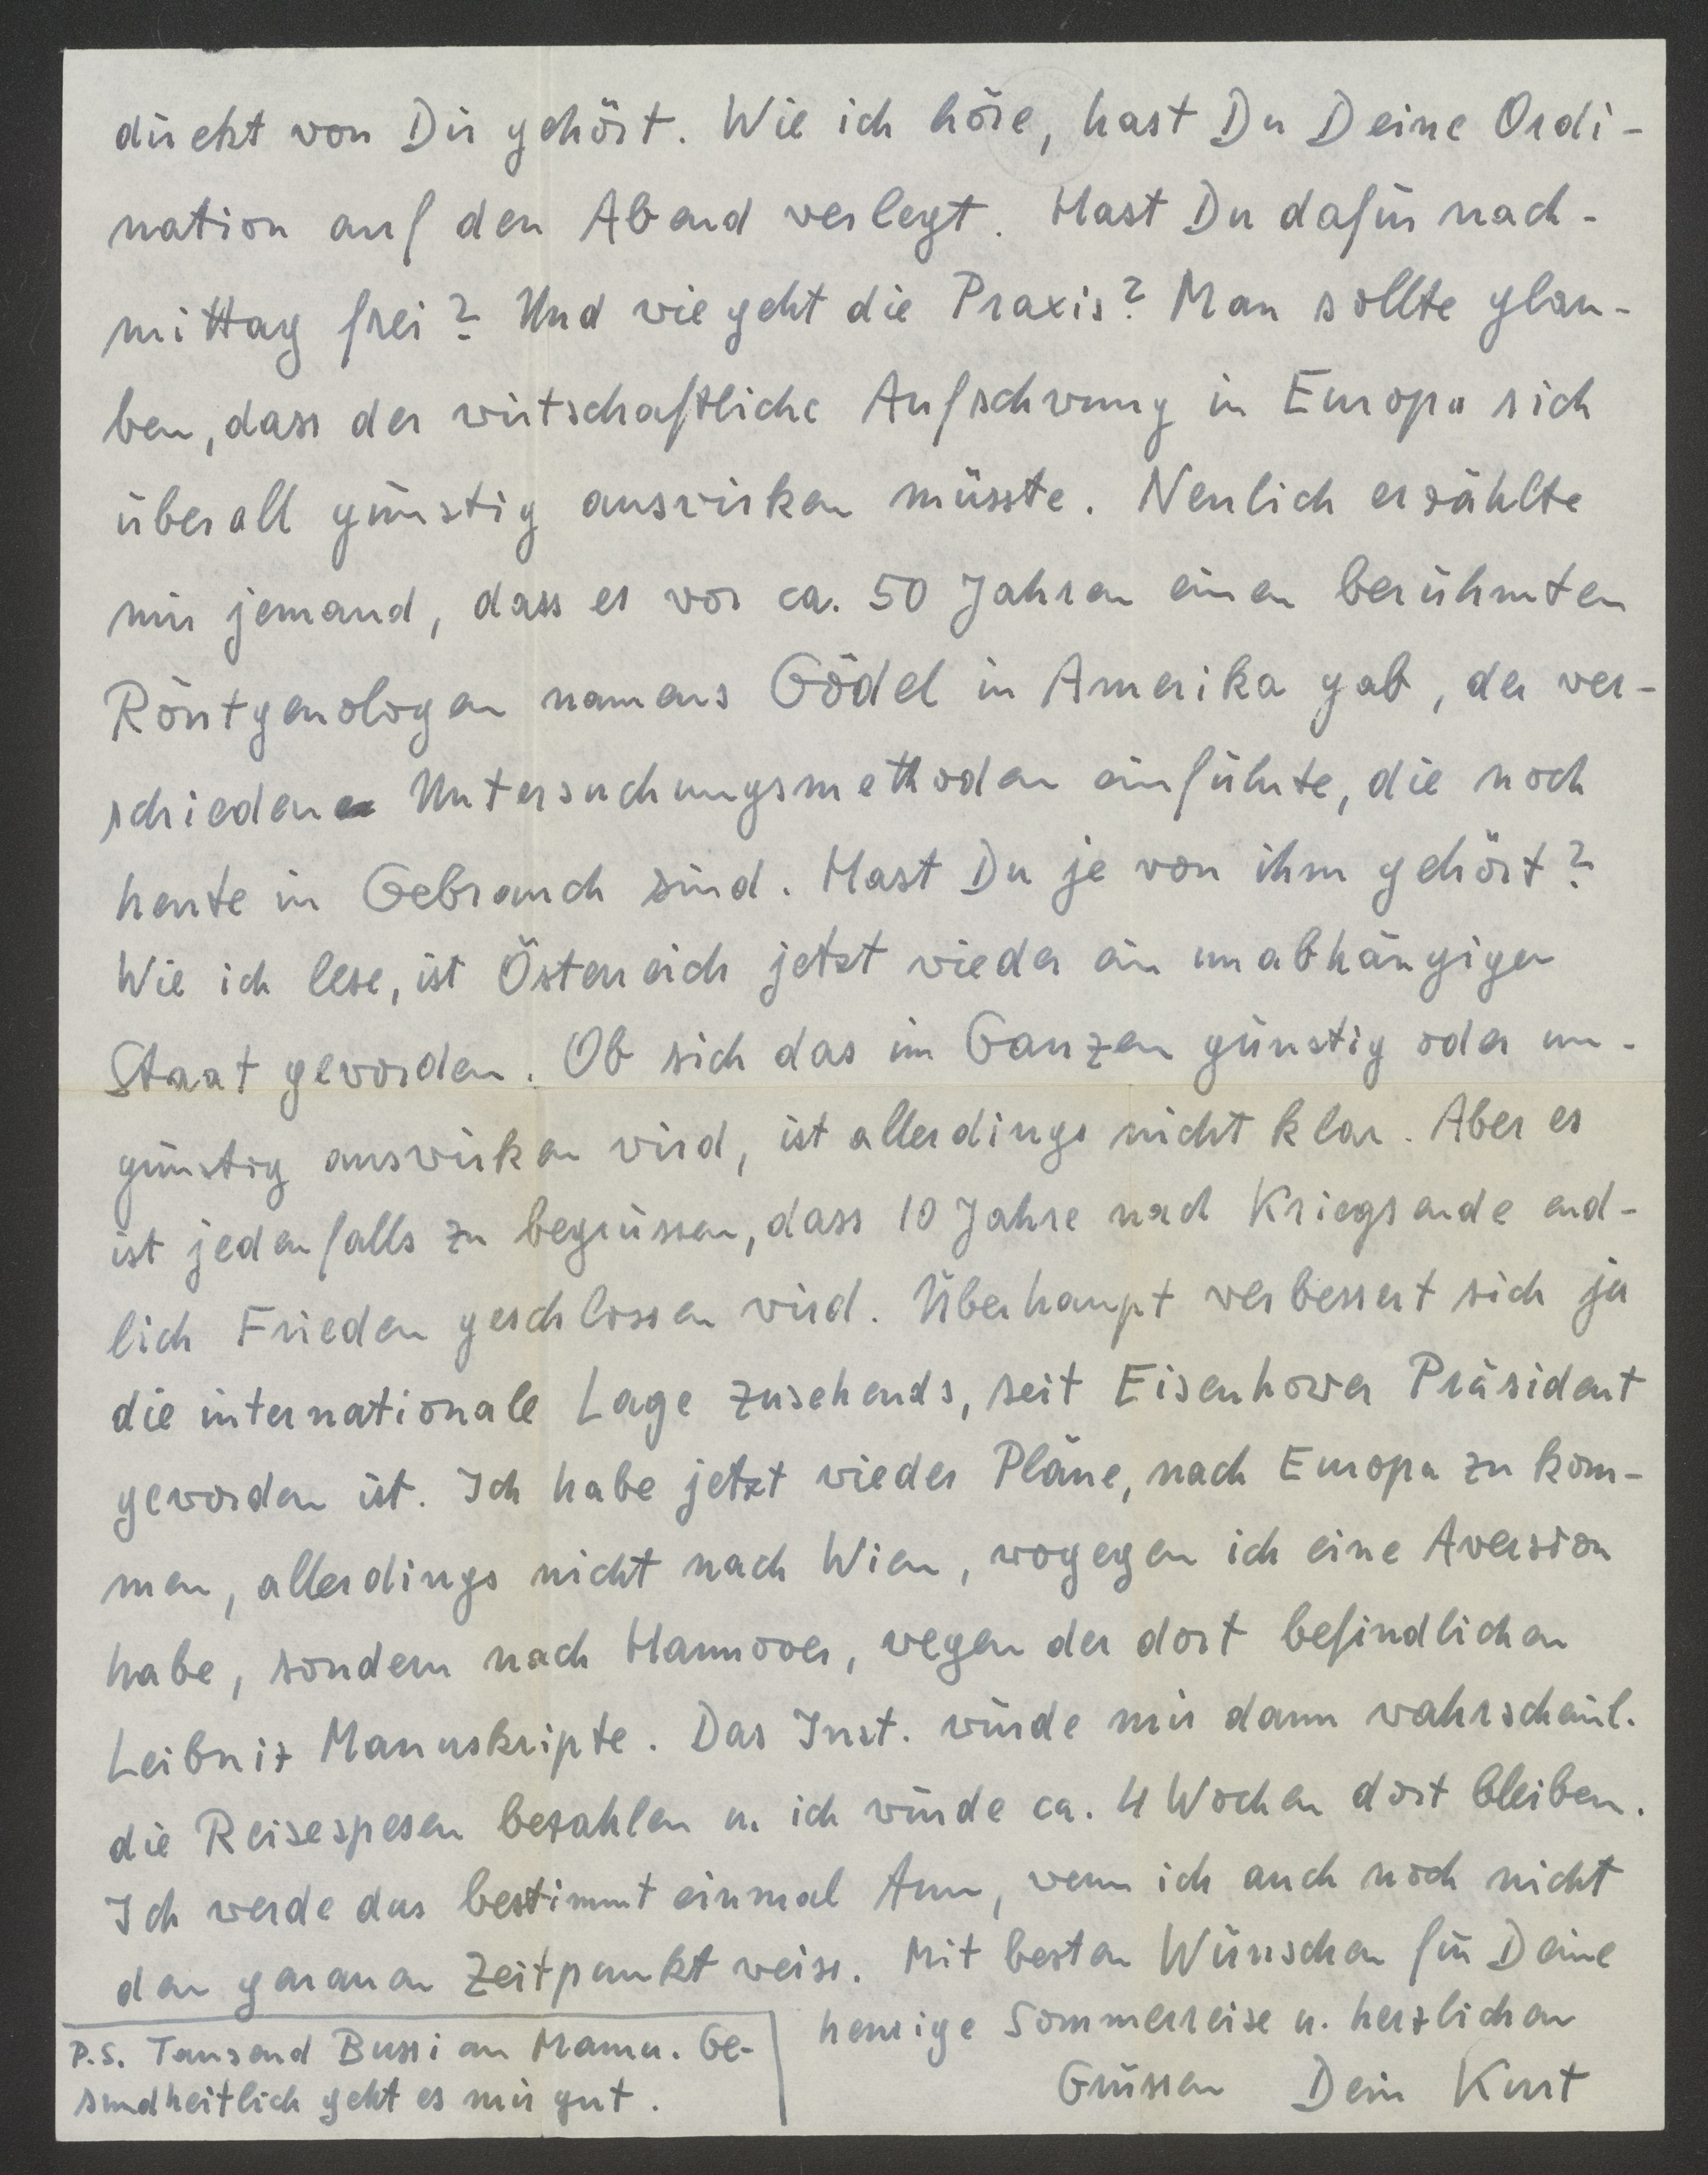 direkt von Dir gehört. Wie ich höre, hast Du Deine Ordi-
nation auf den Abend verlegt. Hast Du dafür nach-
mittag frei? Und wie geht die Praxis? Man sollte glau-
ben, dass der wirtschaftliche Aufschwung in Europa sich
überall günstig auswirken müsste. Neulich erzählte
mir jemand, dass es vor ca. 50 Jahren einen berühmten
Röntgenologen namens Gödel in Amerika gab, der ver-
schiedene Untersuchungsmethoden einführte, die noch
heute in Gebrauch sind. Hast Du je von ihm gehört?
Wie ich lese, ist Österreich jetzt wieder ein unabhängiger
Staat geworden. Ob sich das im Ganzen günstig oder un-
günstig auswirken wird, ist allerdings nicht klar. Aber es
ist jedenfalls zu begrüssen, dass 10 Jahre nach Kriegsende end-
lich Frieden geschlossen wird. Überhaupt verbessert sich ja
die internationale Lage zusehends, seit Eisenhower Präsident
geworden ist. Ich habe jetzt wieder Pläne, nach Europa zu kom-
men, allerdings nicht nach Wien, wogegen ich eine Aversion
habe, sondern nach Hannover, wegen der dort befindlichen
Leibniz Manuskripte. Das Inst. würde mir dann wahrscheinl.
die Reisespesen bezahlen u. ich würde ca. 4 Wochen dort bleiben.
Ich werde das bestimmt einmal tun, wenn ich auch noch nicht
den genauen Zeitpunkt weiss. Mit besten Wünschen für Deine
heurige Sommerreise u. herzlichen
Grüssen Dein Kurt
P.S. Tausend Bussi an Mama. Ge-
sundheitlich geht es mir gut.